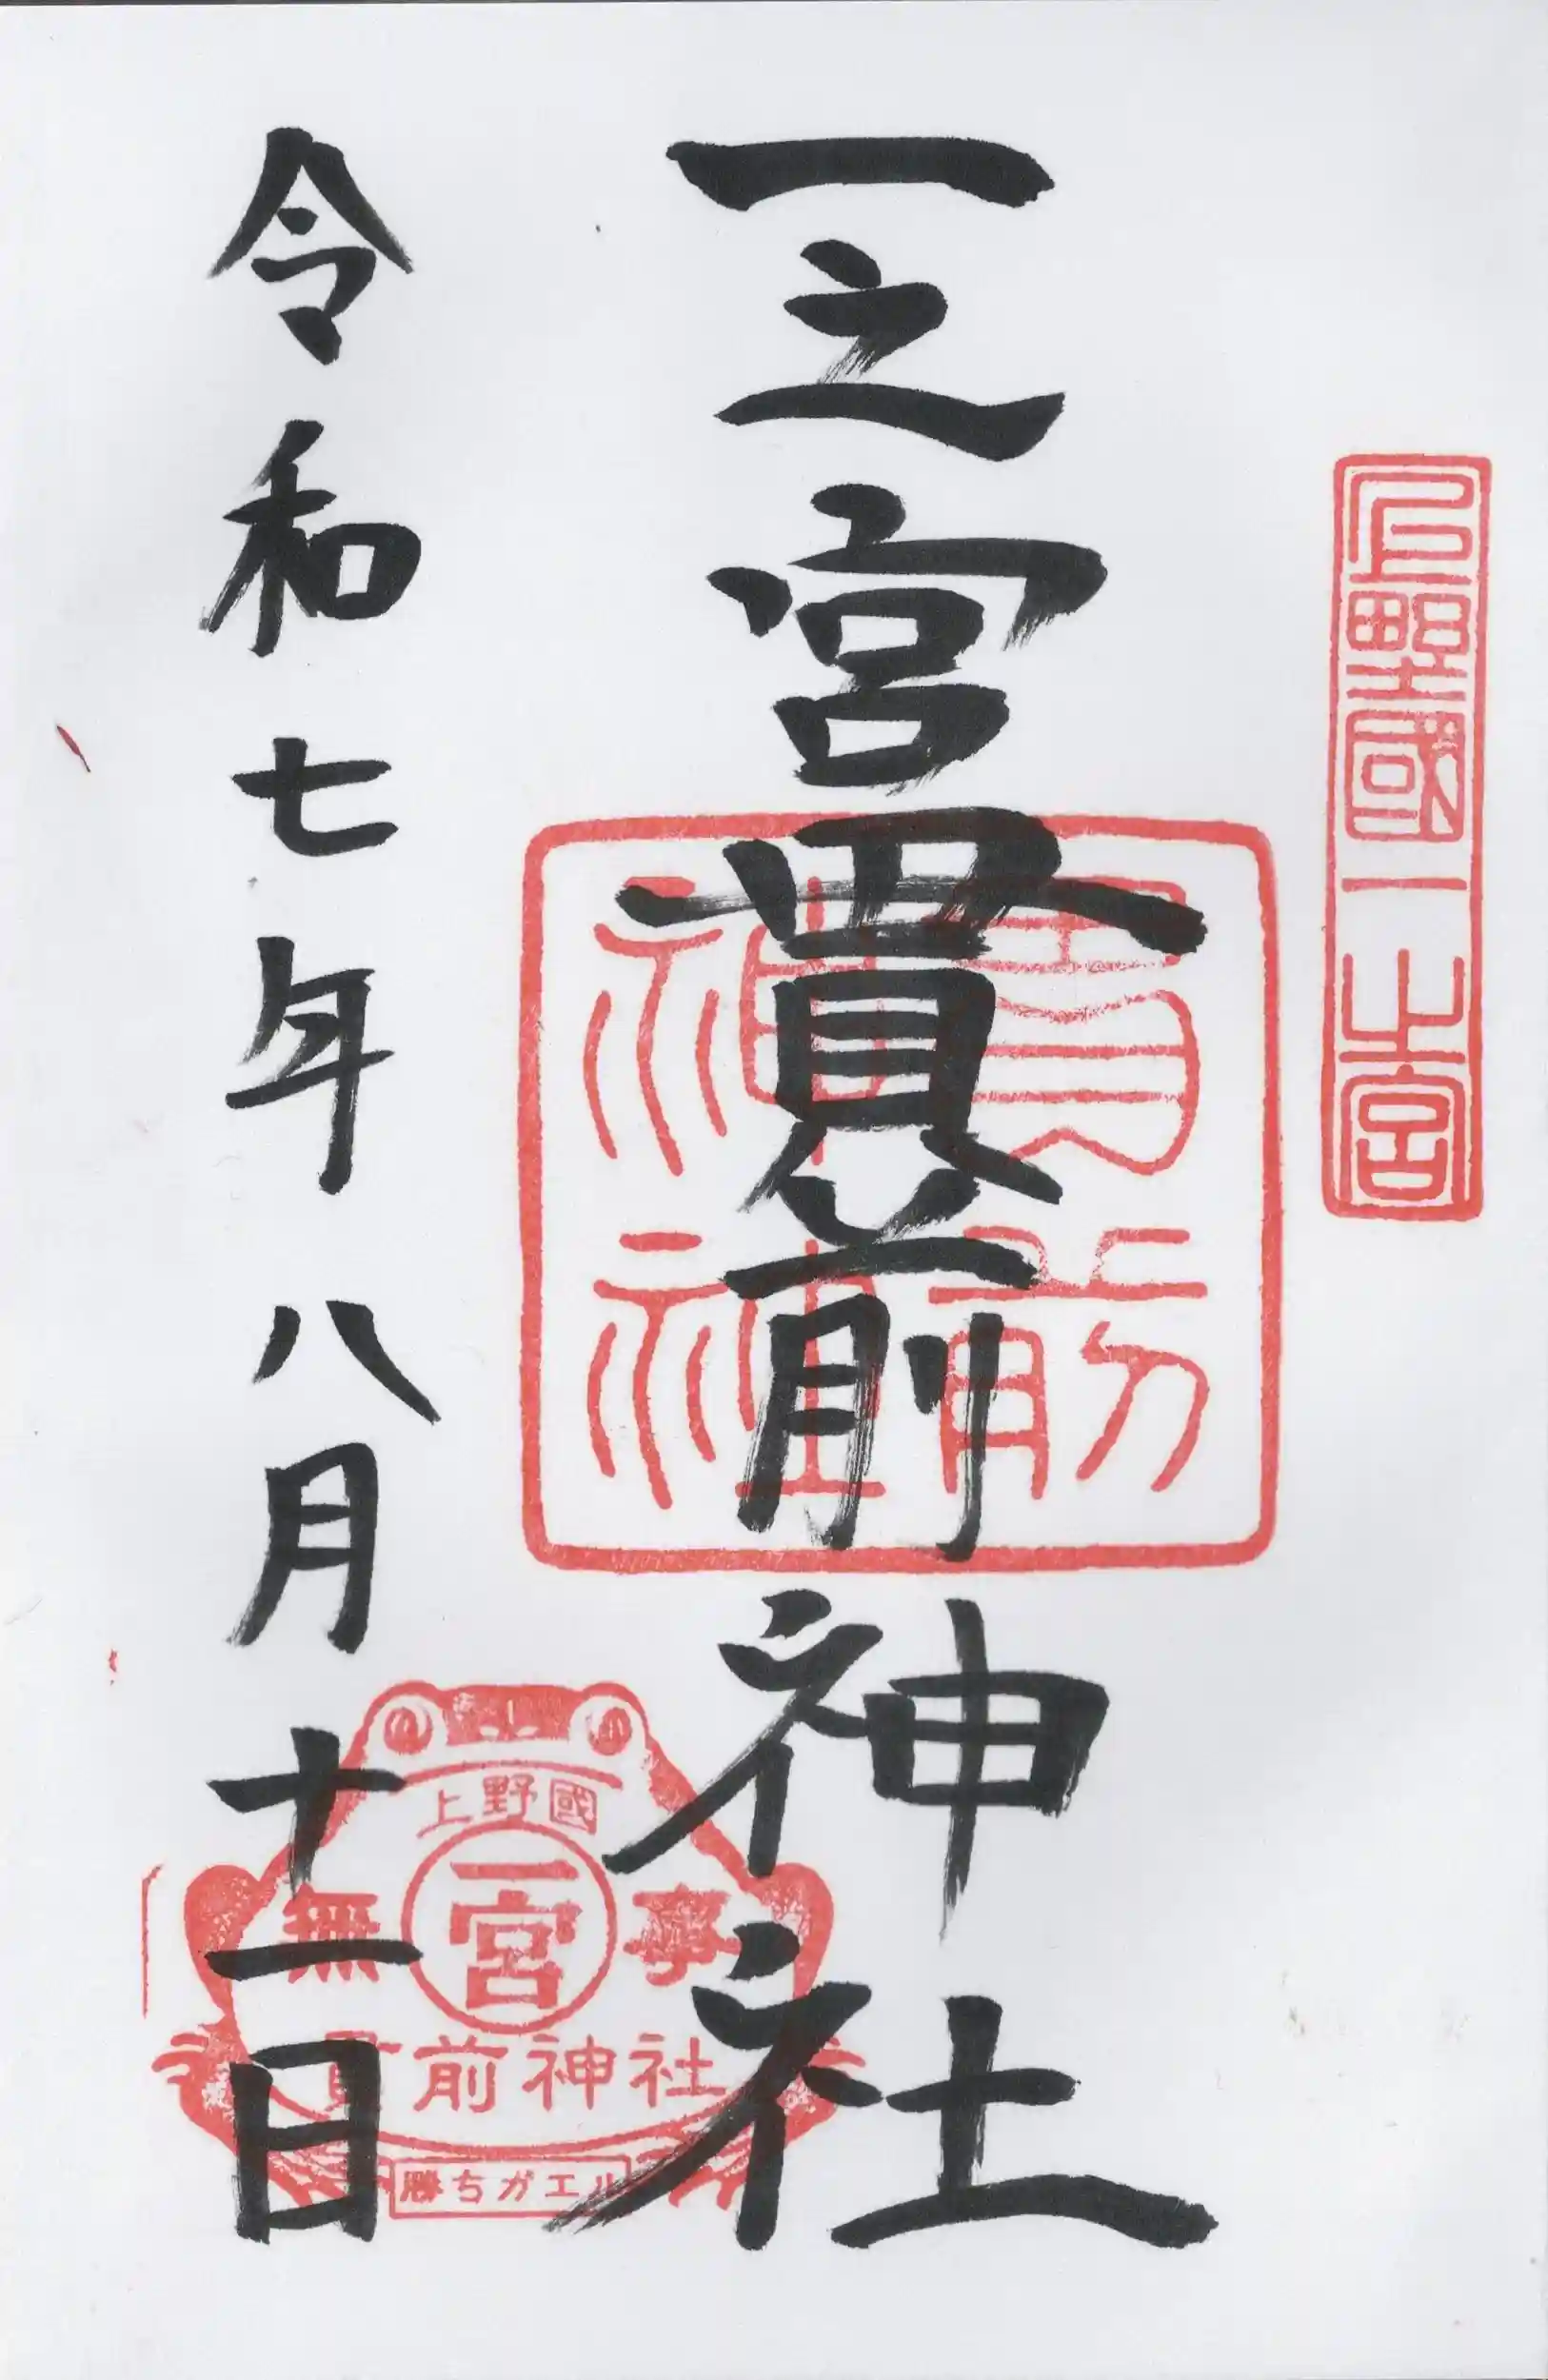 上野國一之宮
一之宮貫前神社
貫前
神社
令和七年八月十一日
上野國
一宮
無事
貫前神社
勝ちガエル